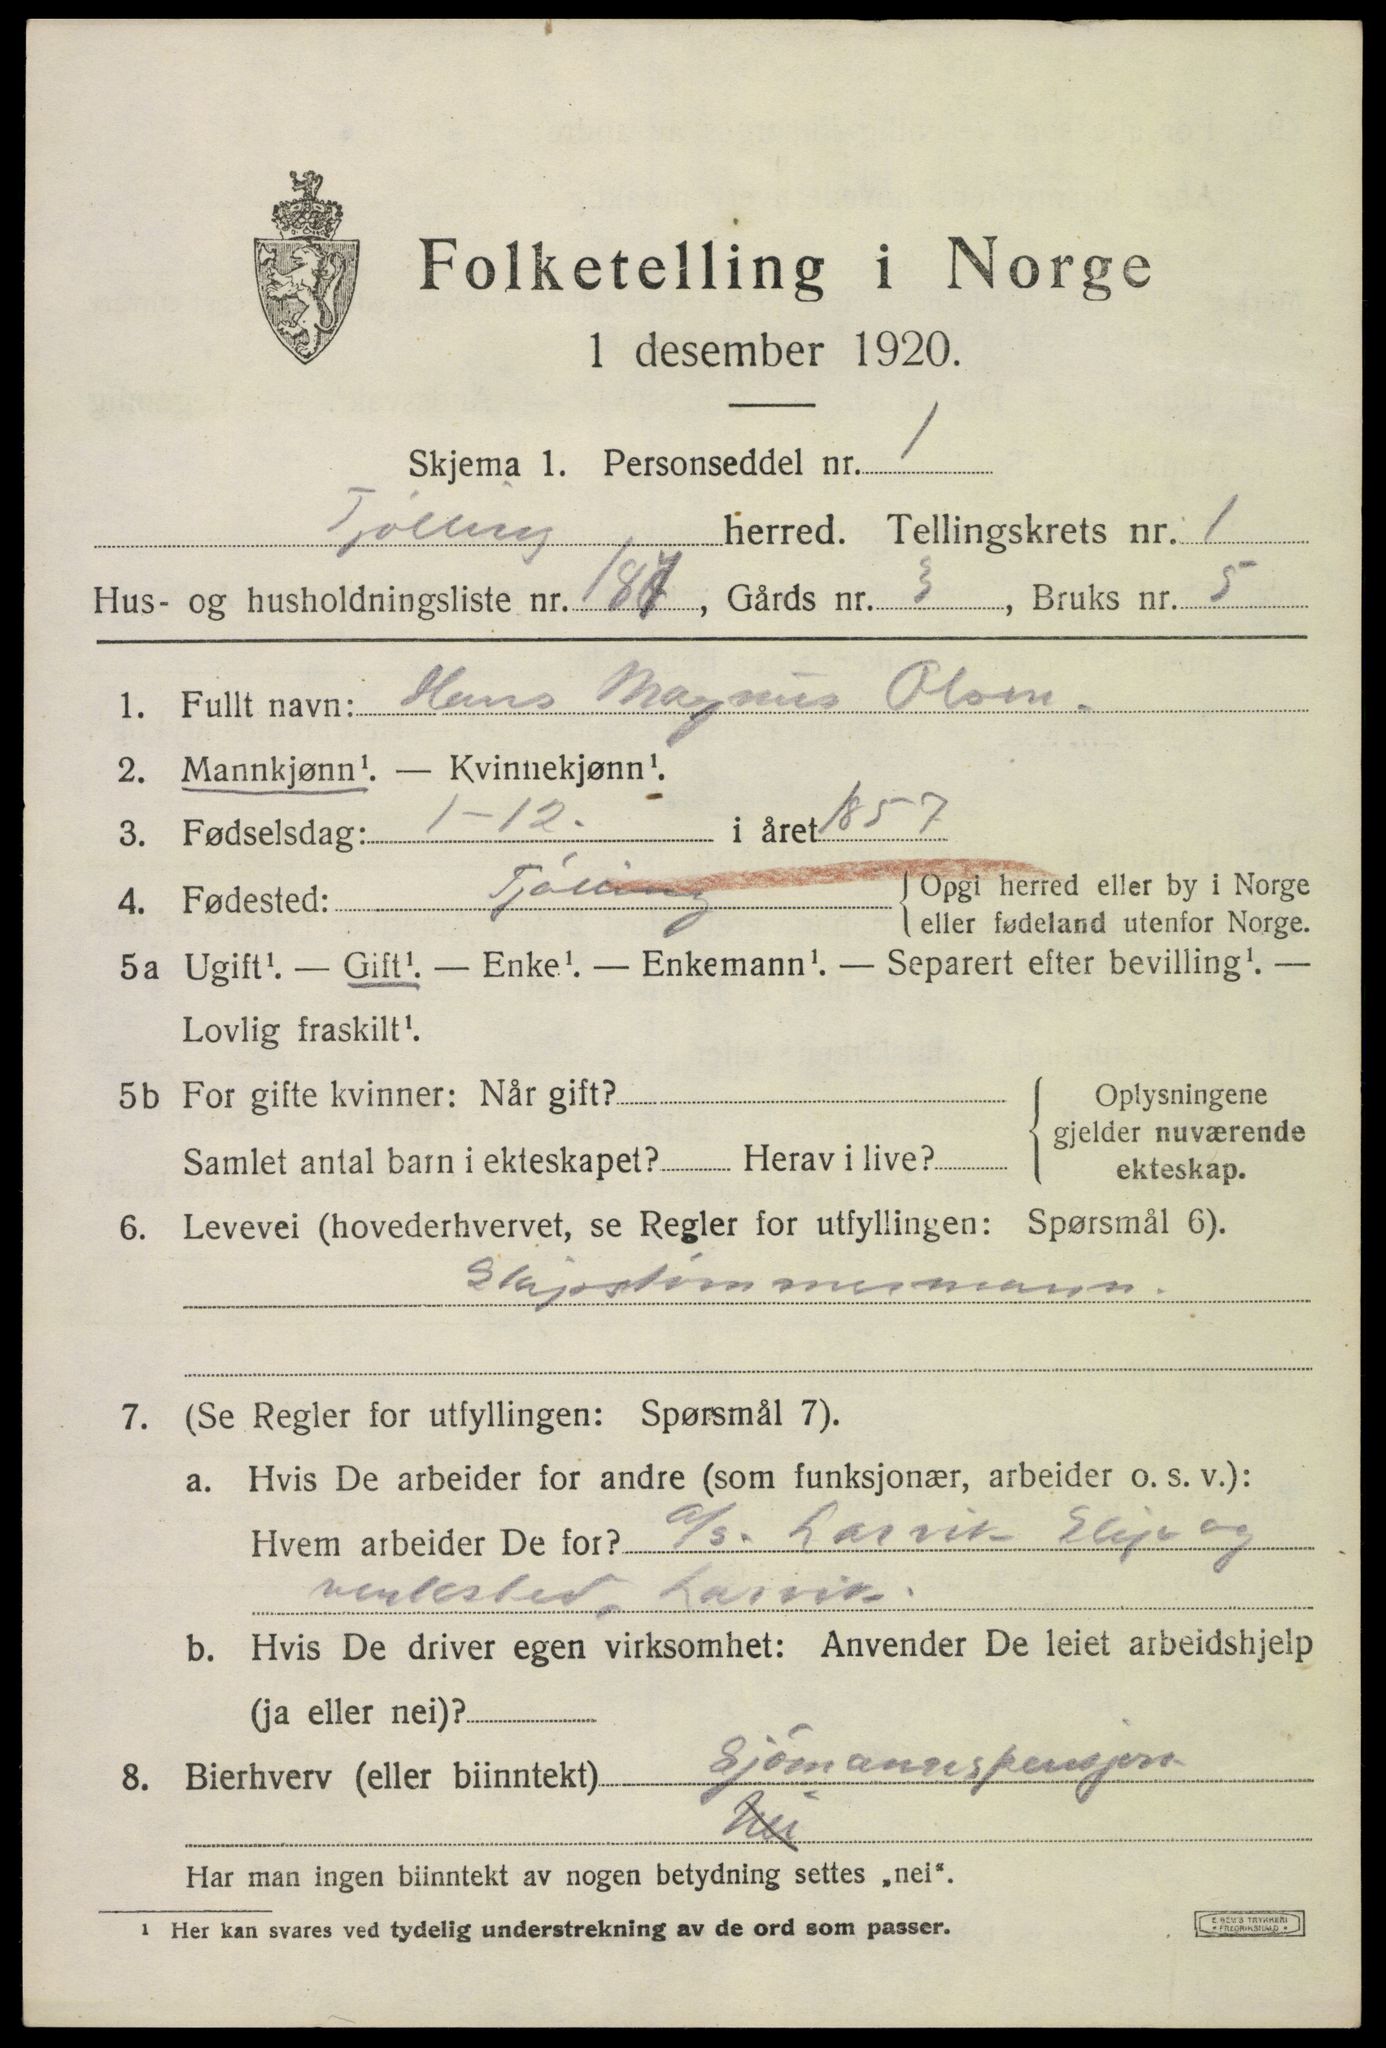 Folketelling i Norge
1 desember 1920.
Skjema 1. Personseddel nr. 1
Tjølling herred. Tellingskrets nr. 1
Hus- og husholdningsliste nr. 187, Gårds nr. 3, Bruks nr. 5
1. Fullt navn: Hans Magnus Olsen.
2. Mannkjønn¹. — Kvinnekjønn¹.
3. Fødselsdag: 1-12. i året 1857
4. Fødested: Tjölling { Opgi herred eller by i Norge
eller fødeland utenfor Norge.
5a Ugift¹. — Gift¹. — Enke¹. — Enkemann¹. — Separert efter bevilling¹. —
Lovlig fraskilt¹.
5b For gifte kvinner: Når gift? { Oplysningene
gjelder nuværende
Samlet antal barn i ekteskapet? Herav i live?
ekteskap.
6. Levevei (hovederhvervet, se Regler for utfyllingen: Spørsmål 6).
Skipstömmermann.
7. (Se Regler for utfyllingen: Spørsmål 7).
a. Hvis De arbeider for andre (som funksjonær, arbeider o. s. v.):
Hvem arbeider De for? a/s. Larvik Slip og
verksted, Larvik.
b. Hvis De driver egen virksomhet: Anvender De leiet arbeidshjelp
(ja eller nei)?
8. Bierhverv (eller biinntekt) Sjömannspensjon
Nei
Har man ingen biinntekt av nogen betydning settes „nei“.
¹ Her kan svares ved tydelig understrekning av de ord som passer.
E. SEM'S TRYKKERI
• FREDRIKSHALD •